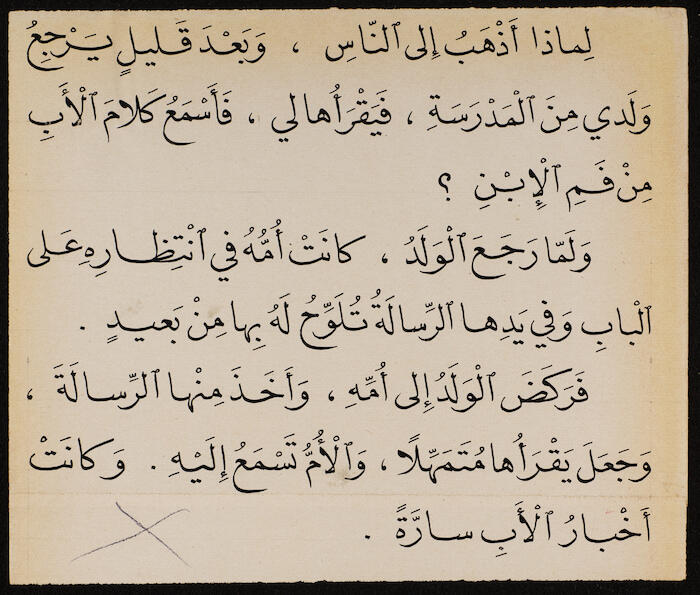 لِماذا أَذْهَبُ إِلى ٱلنّاسِ ، وَبَعْدَ قَليلٍ يَرْجِعُ
وَلَدي مِنَ ٱلْمَدْرَسَةِ ، فَيَقْرَأُها لي ، فَأَسْمَعُ كَلامَ ٱلْأَبِ
مِنْ فَمِ ٱلْإِبْنِ ؟
وَلَمّا رَجَعَ ٱلْوَلَدُ ، كانَتْ أُمُّهُ في ٱنْتِظارِهِ عَلى
ٱلْبابِ وَفي يَدِها ٱلرِّسالَةُ تُلَوِّحُ لَهُ بِها مِنْ بَعيدٍ .
فَرَكَضَ ٱلْوَلَدُ إِلى أُمِّهِ ، وَأَخَذَ مِنْها ٱلرِّسالَةَ ،
وَجَعَلَ يَقْرَأُها مُتَمَهِّلًا ، وَٱلْأُمُّ تَسْمَعُ إِلَيْهِ . وَكانَتْ
أَخْبارُ ٱلْأَبِ سارَّةً .